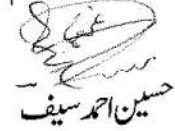 حسین احمد سیف